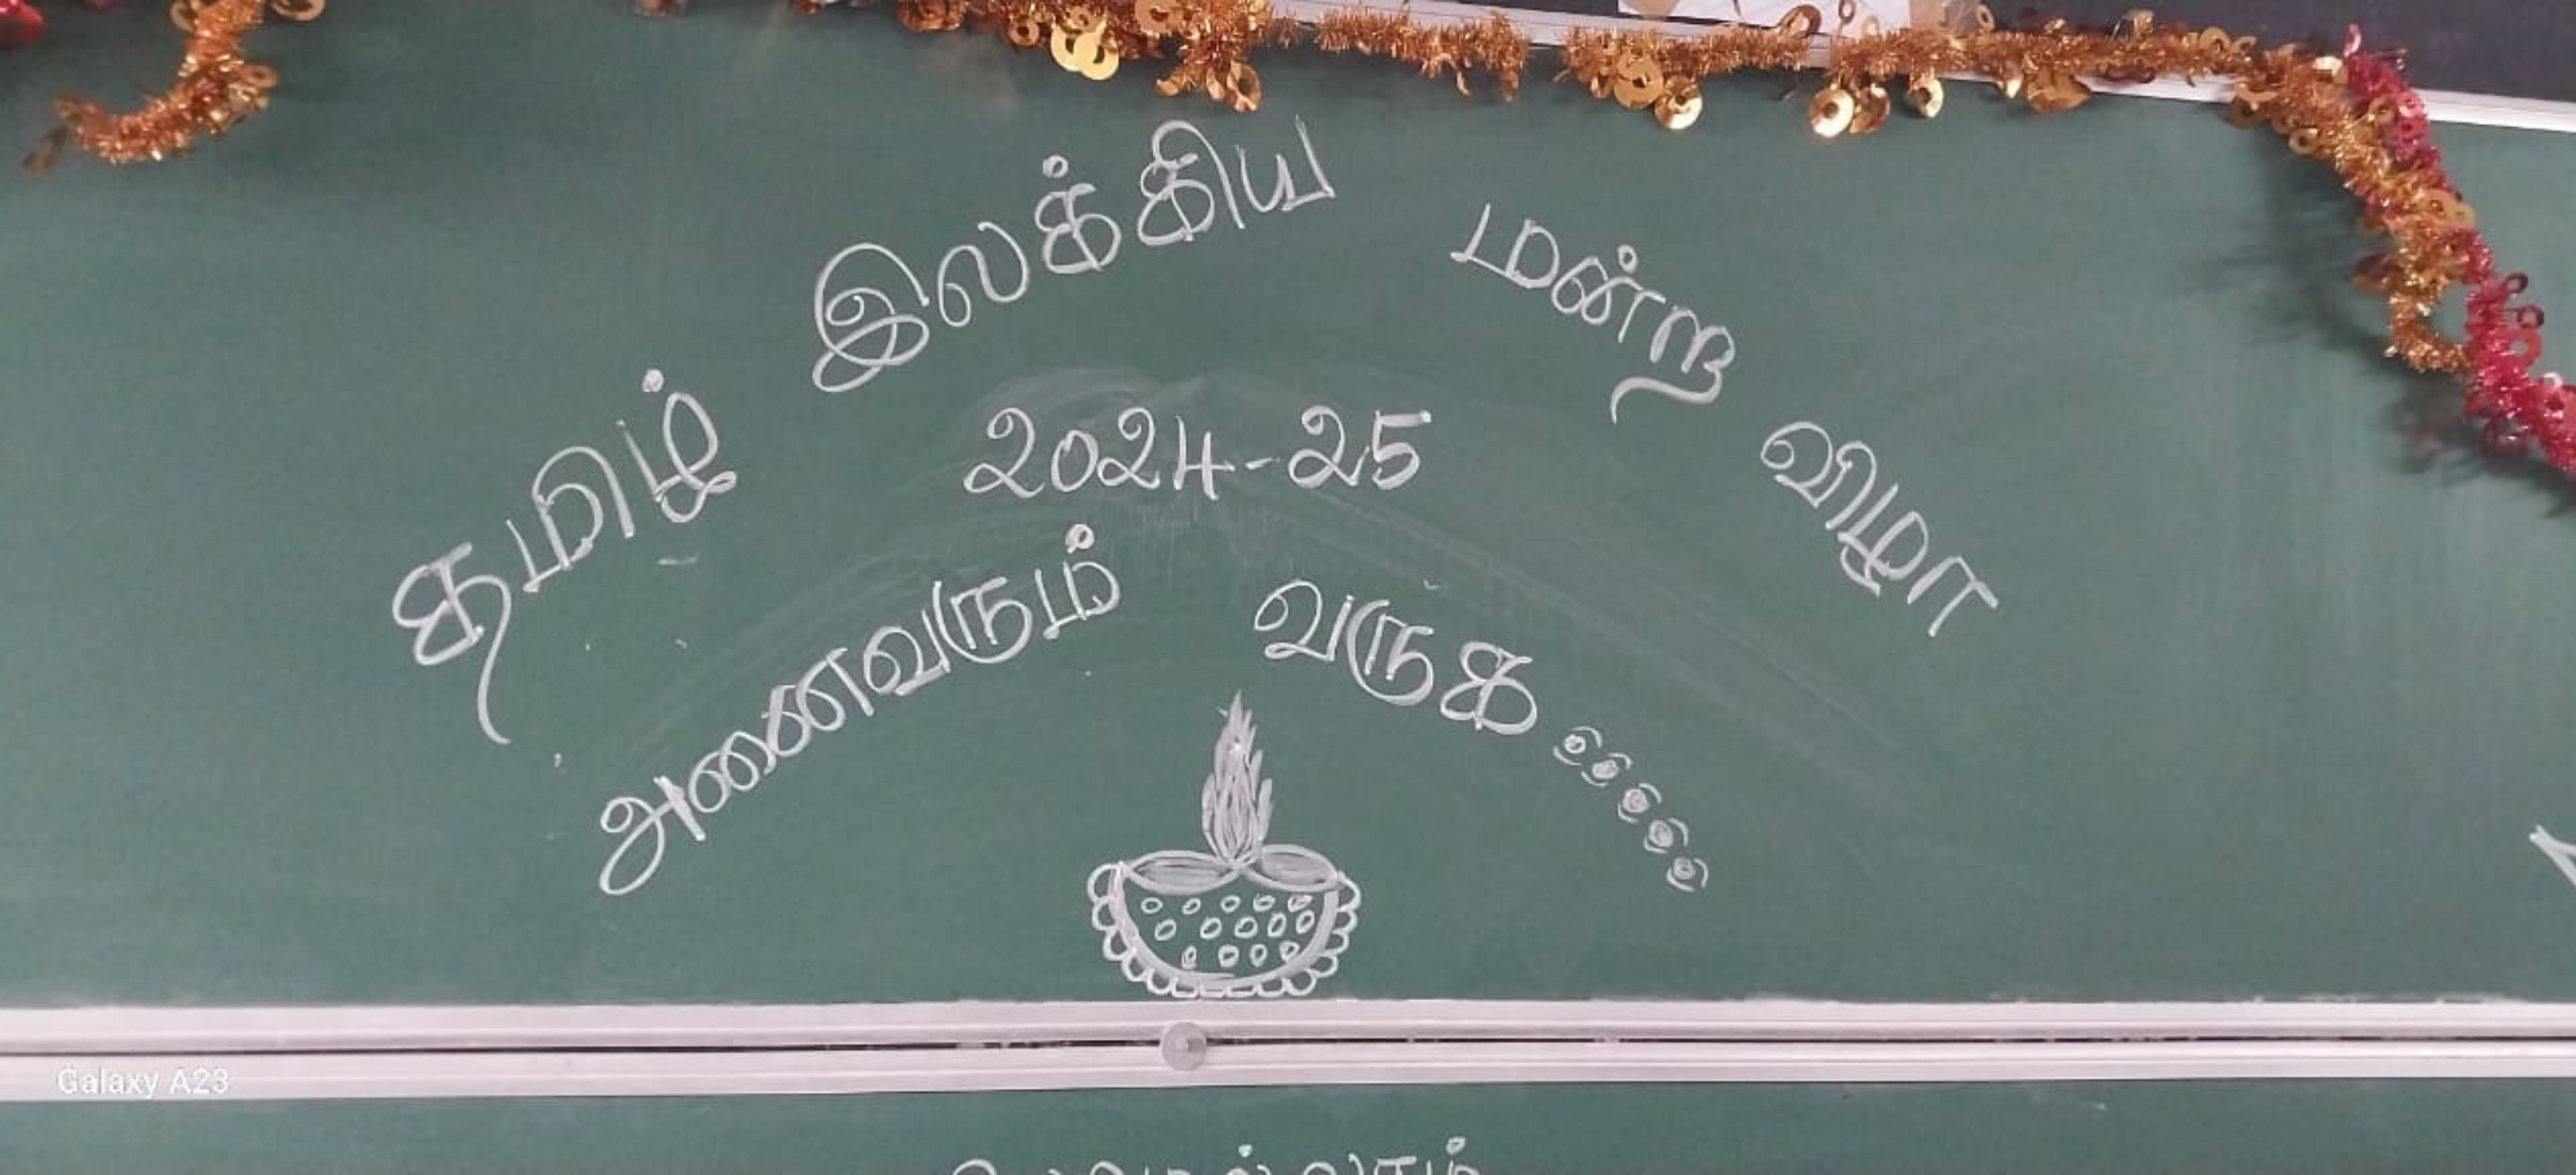 தமிழ் இலக்கிய மன்ற விழா
2024-25
அனைவரும் வருக
Galaxy A23